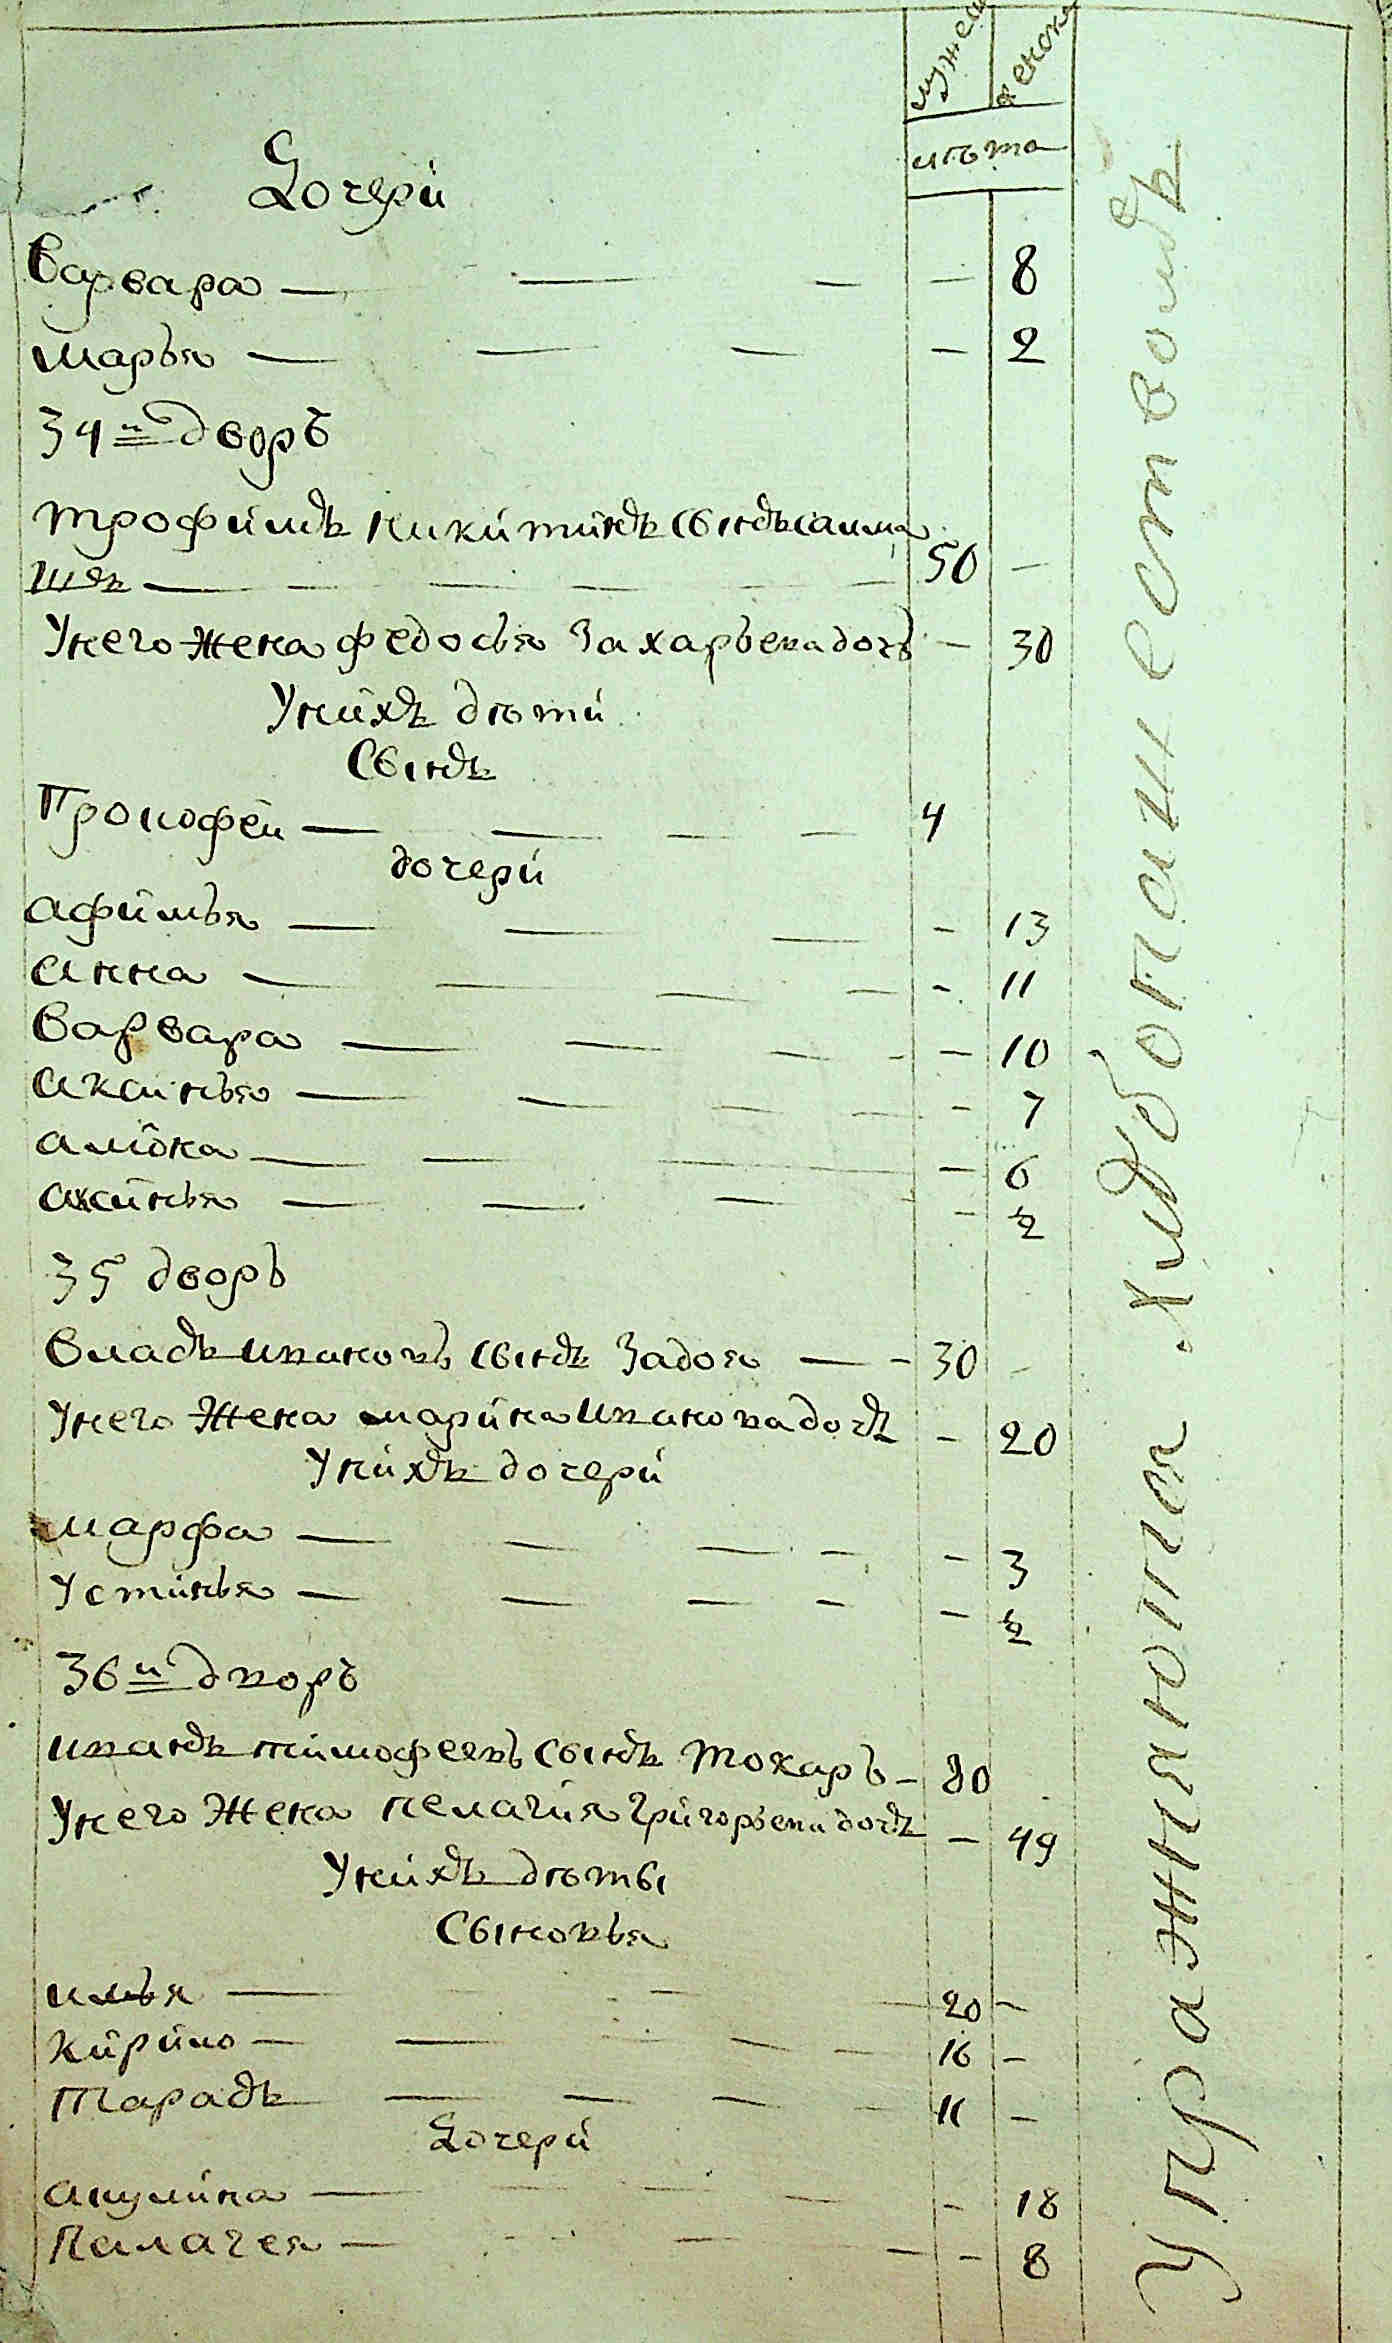 мужеска
женска
лѣта
Дочери
Варвара — — — — 8
Марья — — — — 2
34й дворъ
Трофимъ Никитинъ сынъ
50 —
Унего жена Федосья Захарьева дочь — 30
Унихъ дѣти
Сынъ
Прокофей — — — — 4
дочери
Афимья — — — — 13
Анна — — — — — 11
Варвара — — — — — 10
Акинья — — — — — 7
— — — — 6
Аксинья — — — — 2
35 дворъ
Власъ Ивановъ сынъ Задоя — — 30 —
Унего жена Марина Иванова дочь — 20
Унихъ дочери
Марфа — — — — — 3
Устинья — — — — — 2
36й дворъ
Иванъ Тимофеевъ сынъ Токаръ — 80
Унего жена Пелагия Григорьева дочь — 49
Унихъ дѣты
Сыновья
Илья — — — 20 —
Кирило — — — — 16 —
Тарасъ — — — — 11 —
Дочери
Акулина — — — — — 18
Палагея — — — — — 8
Упражняются хлѣбопашествомъ